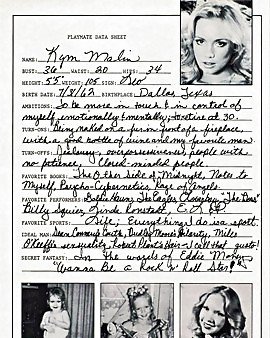 PLAYMATE DATA SHEET
NAME: Kym Malin
BUST: 36" WAIST: 20 HIPS: 34
HEIGHT: 5'5" WEIGHT: 105 SIGN: Leo
BIRTH DATE: 7/8/62 BIRTHPLACE: Dallas, Texas
AMBITIONS: To be more in touch & in control of
myself emotionally & mentally; to retire at 30.
TURN-ONS: Being naked on a fur in front of a fireplace,
with a good bottle of wine and my favorite man
TURN-OFFS: Jealousy, people with
no patience, closed-minded people.
FAVORITE BOOKS: The Other Side of Midnight, Notes to
Myself, Psycho-Cybernetics, Rage of Angels.
FAVORITE PERFORMERS: Goldie Hawn, The Eagles, "The Doors"
Billy Squier, Linda Ronstadt,
FAVORITE SPORTS: Life; Everything I do is a sport.
IDEAL MAN: Sean Connery's Dudley Moore's hilarity, Miles
O'Keeffe's sensuality, Robert Plant's Hair - I call that gusto!
SECRET FANTASY: In the words of Eddie Money
"Wanna Be a Rock 'n' Roll Star"